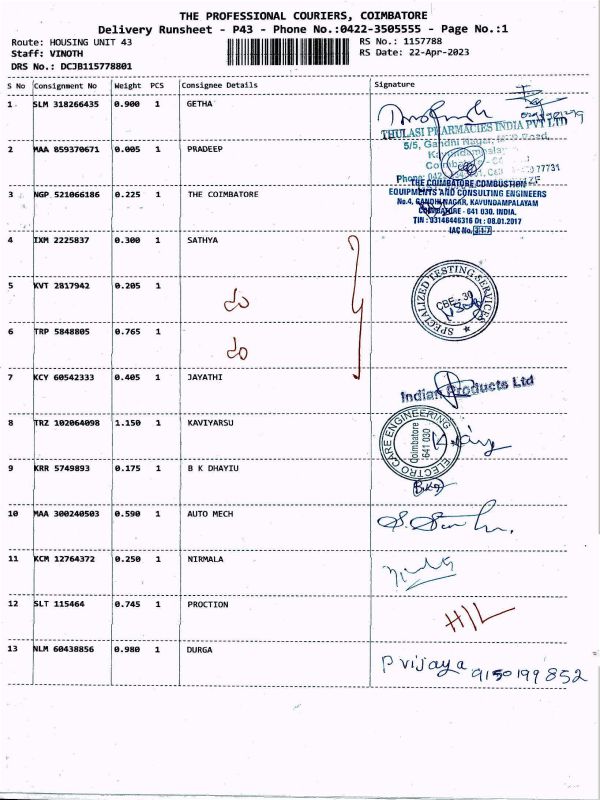 THE PROFESSIONAL COURIERS, COIMBATORE
Delivery Runsheet - P43 - Phone No.:0422-3505555 - Page No.:1
Route: HOUSING UNIT 43 RS No.: 1157788
Staff: VINOTH RS Date: 22-Apr-2023
DRS No.: DCJB115778801
S No Consignment No Weight PCS Consignee Details Signature
1 SLM 318266435 0.900 1 GETHA
THULASI PHARMACIES INDIA PVT LTD
2 MAA 859370671 0.005 1 PRADEEP
5/5, Gandhi Nagar,
3 NGP 521066186 0.225 1 THE COIMBATORE
THE COIMBATORE COMBUSTION
EQUIPMENTS AND CONSULTING ENGINEERS
No.4, GANDHI NAGAR, KAVUNDAMPALAYAM
COIMBATORE - 641 030. INDIA.
TIN : 03146446316 Dt : 08.01.2017
IAC No.
4 IXM 2225837 0.300 1 SATHYA
5 KVT 2817942 0.205 1 do
SPECIALIZED TESTING SERVICES
CBE - 30
6 TRP 5848805 0.765 1 do
7 KCY 60542333 0.405 1 JAYATHI
Indian Products Ltd
8 TRZ 102064098 1.150 1 KAVIYARSU
ELECTRO CARE ENGINEERING
Coimbatore
641 030
9 KRR 5749893 0.175 1 B K DHAYIU
10 MAA 300240503 0.590 1 AUTO MECH
11 KCM 12764372 0.250 1 NIRMALA
12 SLT 115464 0.745 1 PROCTION
13 NLM 60438856 0.980 1 DURGA
P vijaya 9150199852